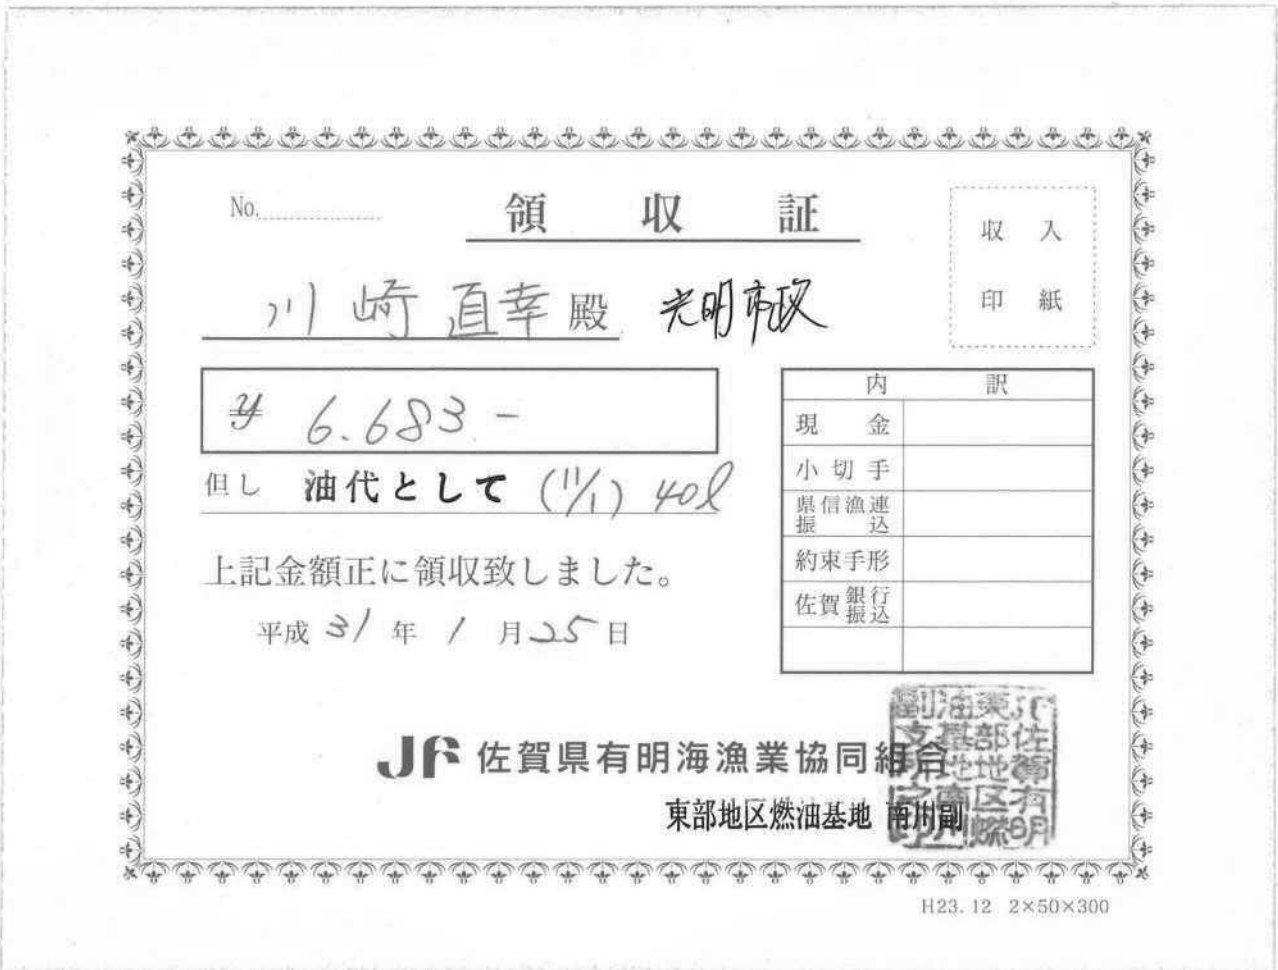 No.
領収証
収入
印紙
川崎直幸殿 光明市政
¥ 6.683.-
但し 油代として (11/1) 40ℓ
上記金額正に領収致しました。
平成31年1月25日
内訳
現金
小切手
県信漁連振込
約束手形
佐賀銀行振込
JF 佐賀県有明海漁業協同組合
東部地区燃油基地 南川副
JF佐賀有明
東部地区燃
油基地南川
副支所之印
H23.12 2×50×300